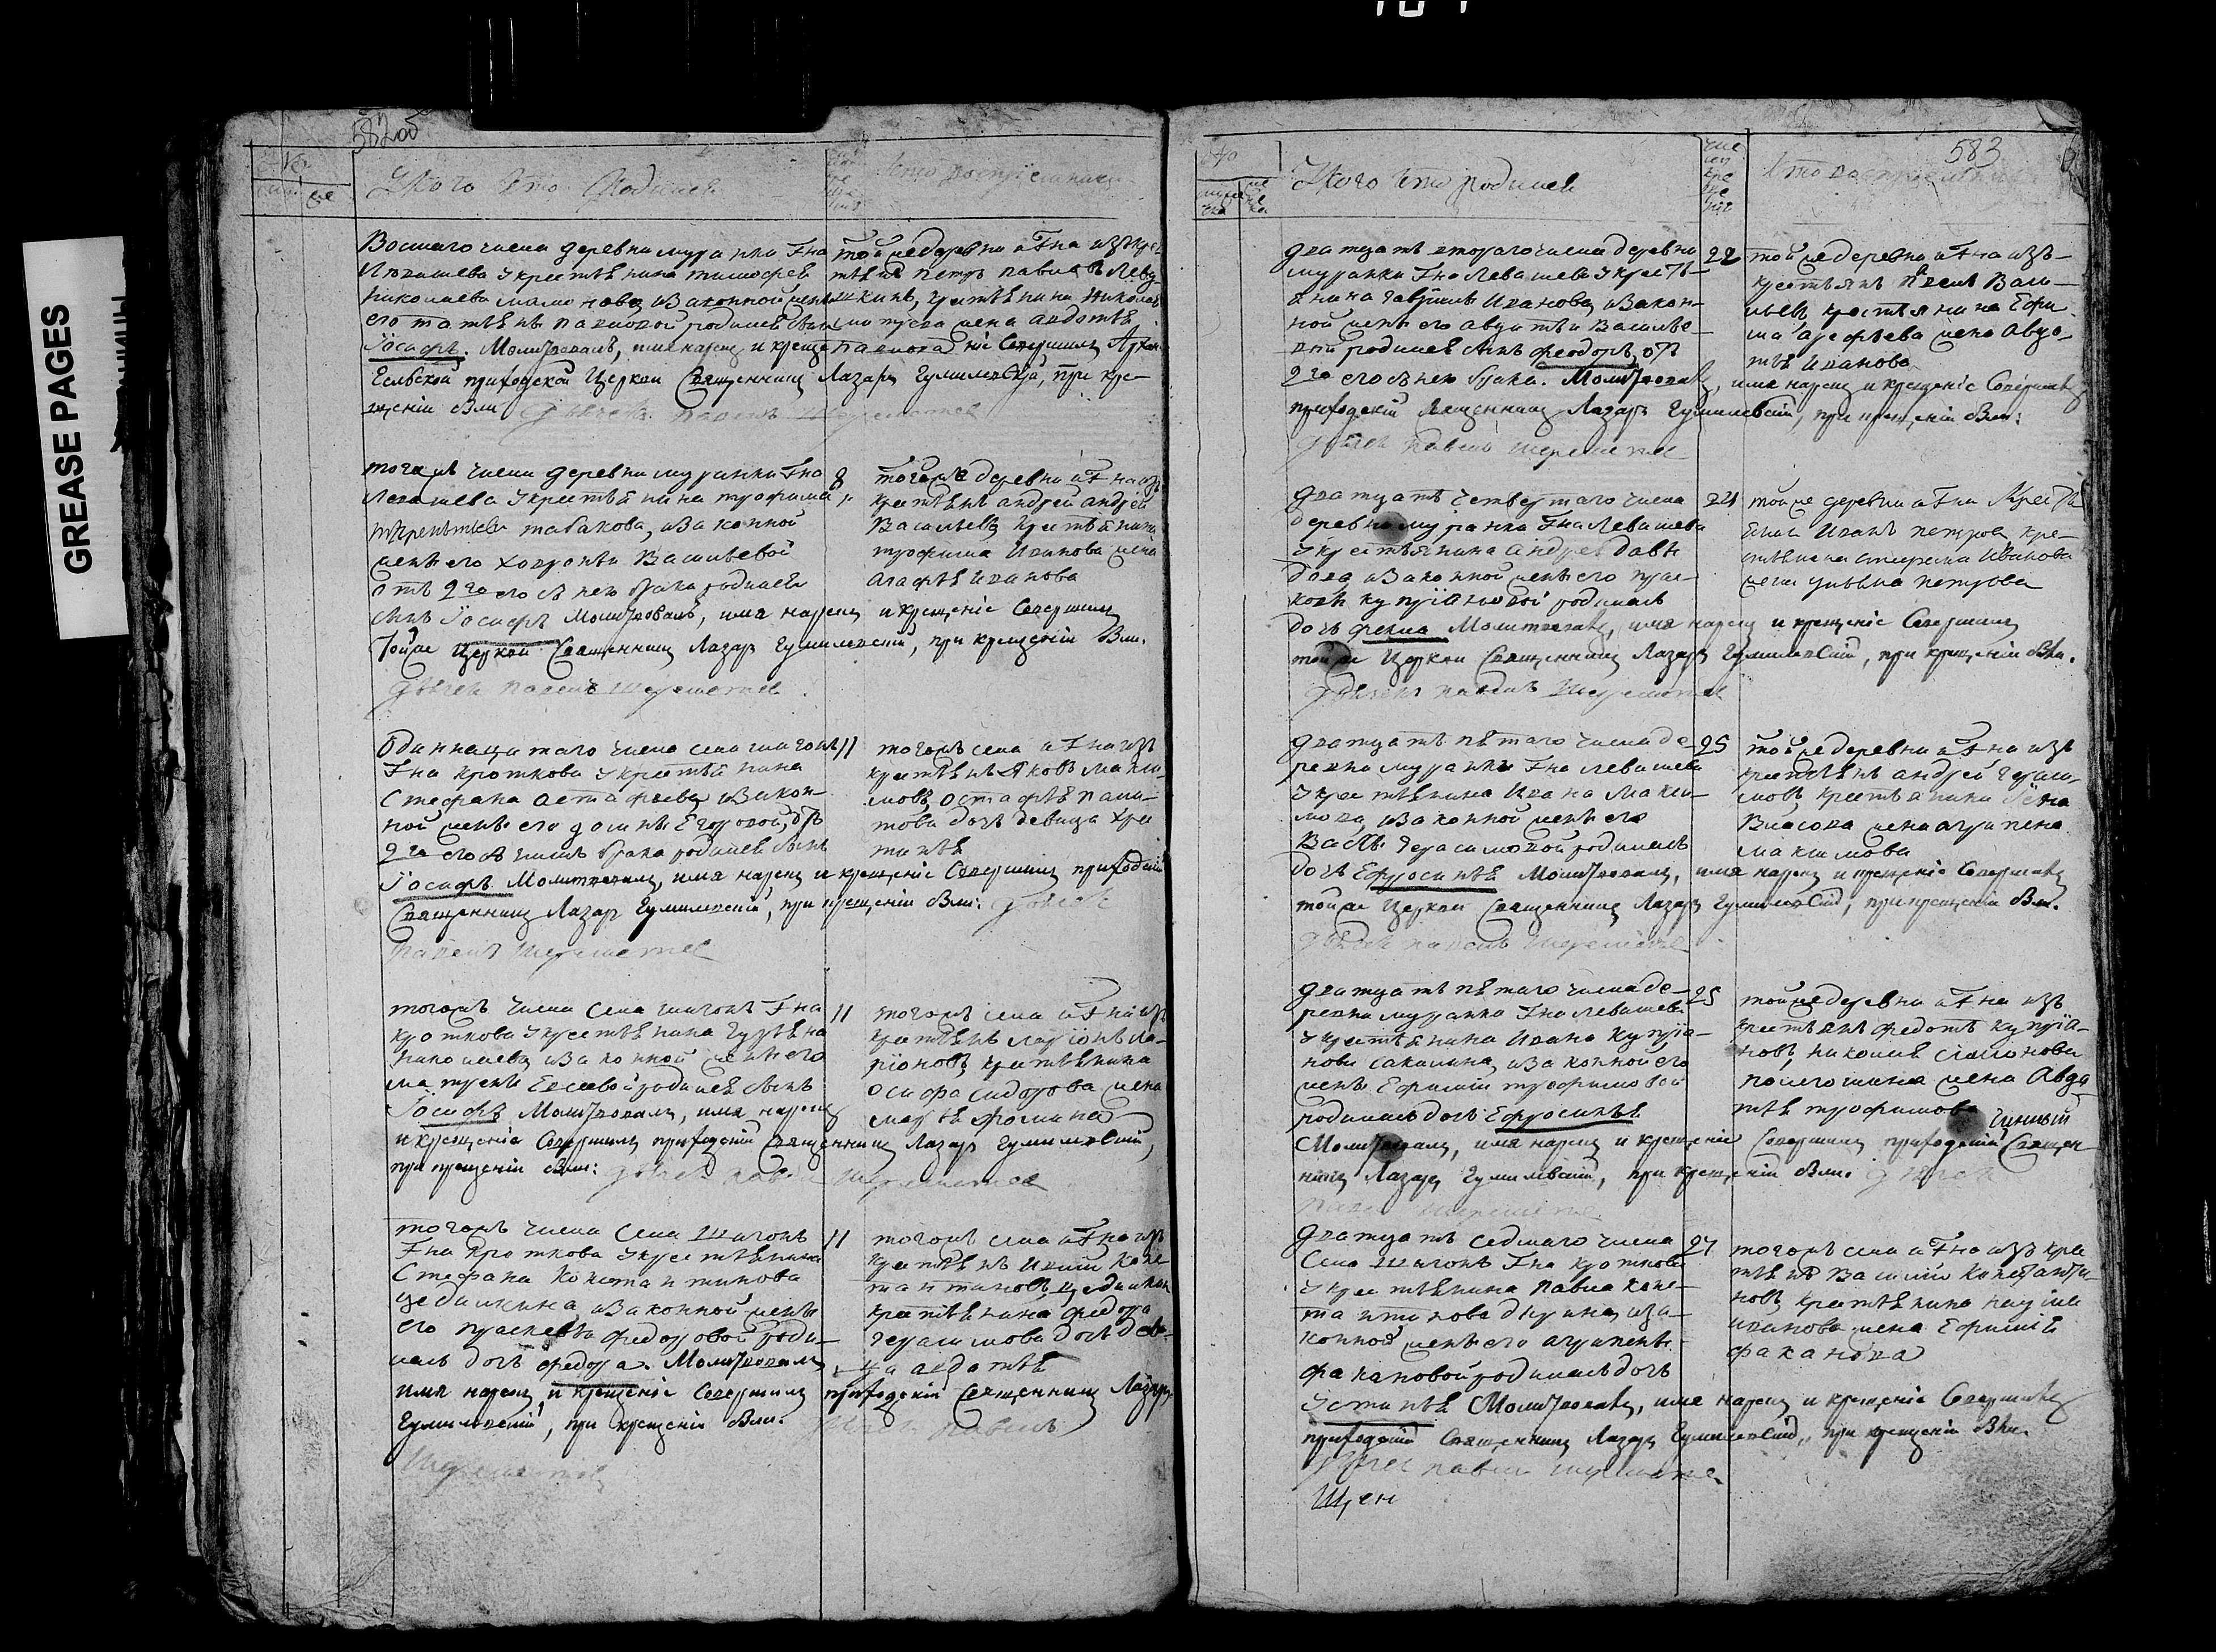 GREASE PAGES
582об
У кого кто родился
Кто восприемники
Восмаго числа деревни муранки Гна
Левашева у крестьянина тимофея
Николаева мамонова, и законной жены
его татьяны павловой родился сынъ
Iосифъ. Молитвовалъ, имя нарец и крещение совершилъ Архан-
гельской приходской Церкви Священникъ Лазарь Гумилевскій, при кре-
щеніи были дьячекъ павелъ шереметев
той же деревни и Гна изъ кре-
стьянъ петръ павловъ
крестьянина николая
жена авдотья
павлова
того ж числа деревни муранки Гна
Левашева у крестьянина трофима
терентьева табакова, и законной
жены его ховроньи Васильевой
отъ 2го его с нею брака родился
сынъ Iосифъ Молитвовалъ, имя нарец и крещеніе Совершилъ
тойже Церкви Священникъ Лазарь Гумилевскій, при крещеніи были
дьячекъ павелъ шереметев
8
тогожъ деревни и Гна изъ
крестьянъ андрей андрей
Васильевъ, крестьянина
трофима Иванова жена
агафья иванова
Одиннацатаго числа села шигонъ
Гна кроткова у крестьянина
Стефана астафьева и закон-
ной жены его домны Егоровой, отъ
2го его с нимъ брака родился сынъ
Iосифъ Молитвовалъ, имя нарец и крещеніе Совершилъ приходскій
Священникъ Лазарь Гумилевскій, при крещеніи были: дьячекъ
павелъ шереметев
11
тогожъ села и Гна изъ
крестьянъ Яковъ макси-
мовъ, остафья пани-
това дочь девица хри
стинья
тогожъ числа Села шигонъ Гна
кроткова у крестьянина гурьяна
николаева, и законной жены его
матрены Евсевой родился сынъ
Iосифъ Молитвовалъ, имя нарец
и крещеніе Совершилъ приходскій Священникъ Лазарь Гумилевскій,
при крещеніи были: дьячекъ павелъ шереметев
11
тогожъ села и Гна изъ
крестьянъ ларіонъ ла-
ріоновъ, крестьянина
осифа сидорова жена
марья фомина
тогожъ числа Села Шигонъ
Гна кроткова у крестьянина
Стефана Константинова
цедилкина, и законной жены
его прасковьи федоровой роди-
лась дочь федора. Молитвовалъ
имя нарец, и крещеніе Совершилъ приходскій Священникъ Лазарь
Гумилевскій, при крещеніи были. дьячекъ павелъ
шереметев
11
тогожъ села и Гна изъ
крестьянъ Конс
тантиновъ цедилкин
крестьянина федора
герасимова дочь деви-
ца авдотья
583
У кого кто родился
Кто восприемники
дватцать втораго числа деревни
муранки Гна Левашева у кресть-
янина гаврилы Иванова, и закон-
ной жены его авдотьи Василье-
вой родился сынъ феодоръ, отъ
2го его с нею брака. Молитвовалъ, имя нарец и крещеніе Совершилъ
приходскій Священникъ Лазарь Гумилевскій, при крещеніи были:
дьячекъ павелъ шереметев
22
той же деревни и Гна изъ
крестьянъ Васи-
льевъ, крестьянина Ефи
ма арефьева жена Авдо-
тья Иванова
дватцать четвертаго числа
деревни муранки Гна Левашева
у крестьянина андрея давы
дова, и законной жены его прас-
ковьи купріяновой родилась
дочь фекла Молитвовалъ, имя нарец и крещеніе Совершилъ
тойже Церкви Священникъ Лазарь Гумилевскій, при крещеніи были.
дьячекъ павелъ шереметев
24
той же деревни и Гна Крестья
Иванъ петровъ, кре-
стьянина спиридона Иванова
жена ульяна петрова
дватцать пятаго числа де-
ревни муранки Гна левашева
у крестьянина Ивана Макси-
мова, и законной жены его
Васы герасимовой родилась
дочь Ефросинья Молитвовалъ, имя нарец и крещеніе Совершилъ
тойже Церкви Священникъ Лазарь Гумилевскій, при крещеніи были.
дьячекъ павелъ шереметев
25
той же деревни и Гна изъ
крестьянъ андрей гераси-
мовъ крестьянина
Власова жена агрипена
максимова
дватцать пятаго числа де-
ревни муранки Гна левашева
у крестьянина Ивана купрія-
нова сакалина, и законной его
жены Ефиміи трофимовой
родилась дочь Ефросинья
Молитвовалъ, имя нарец и крещеніе Совершилъ приходскій Священ-
никъ Лазарь Гумилевскій, при крещеніи были. дьячекъ
павелъ шереметев
25
той же деревни и Гна изъ
крестьянъ федотъ купрія-
новъ, николая симонова
жена Авдо
тья трофимова
дватцать седмаго числа
Села Шигонъ Гна кроткова
у крестьянина павла конс-
тантинова и за-
конной жены его агрипены
факановой родилась дочь
устинья Молитвовалъ, имя нарец и крещеніе Совершилъ
приходскій Священникъ Лазарь Гумилевскій, при крещеніи были.
дьячекъ павелъ шереметев
27
тогожъ села и Гна изъ кре
стьянъ Василій Константи-
новъ крестьянина
иванова жена Ефимья
факанова